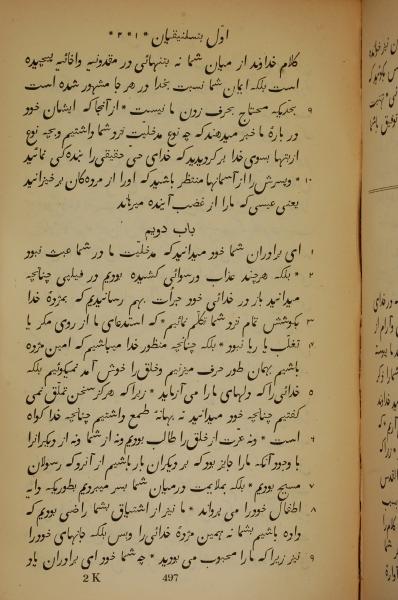 اوّل بتسلنیقیان * ۱ * ۲ *
کلام خداوند از میان شما نه بتنهائی در مقدونیه واخائیه پیچیده
است بلکه ایمان شما نسبت بخدا در هر جا مشهور شده است
۹ بحدیکه محتاج بحرف زدن ما نیست * از آنجا که ایشان خود
در بارهٔ ما خبر میدهند که چه نوع مدخلیّت نزد شما داشتیم وبچه نوع
از بتها بسوی خدا برگردیدید که خدای حی حقیقی را بندگی نمائید
۱۰ * وپسرش را از آسمانها منتظر باشید که اورا از مردهکان برخیزانید
یعنی عیسی که مارا از غضب آینده میرهاند
باب دویم
۱ ای برادران شما خود میدانید که مدخلیّت ما در شما عبث نبود
۲ * بلکه هرچند عذاب ورسوائی کشیده بودیم در فیلپی چنانچه
میدانید باز در خدائی خود جرأت بهم رسانیدیم که بمژدهٔ خدا
۳ بکوشش تمام نزد شما تکلّم نمائیم * که استدعای ما از روی مکر یا
۴ تغلب یا ریا نبود * بلکه چنانچه منظور خدا میباشیم که امین مژده
باشیم بهمان طور حرف میزنیم وخلق را خوش آمد نمیکوئیم بلکه
۵ خدائی را که دلهای مارا می آزماید * زیرا که هرگز سخن تملّق نمی
کفتیم چنانچه خود میدانید نه بهانهٔ طمع داشتیم چنانچه خدا کواه
۶ است * ونه عزّت از خلق را طالب بودیم ونه از شما ونه از دیکران
با وجود آنکه مارا جایز بود که بر دیکران بار باشیم از آنرو که رسولان
۷ مسیح بودیم * بلکه بملایمت درمیان شما بسر میبردیم بطوریکه دایه
۸ اطفال خودرا می پرواند * ما نیز از اشتیاق بشما راضی بودیم که
داده باشیم بشما نه همین مژدهٔ خدائی را وبس بلکه جانهای خودرا
۹ نیز زیرا که مارا محبوب می بودید * چه شما خود ای برادران یاد
2 K 497